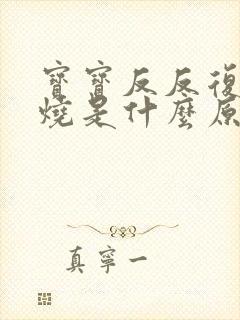 寶寶反反復
燒是什麼原
真寧一